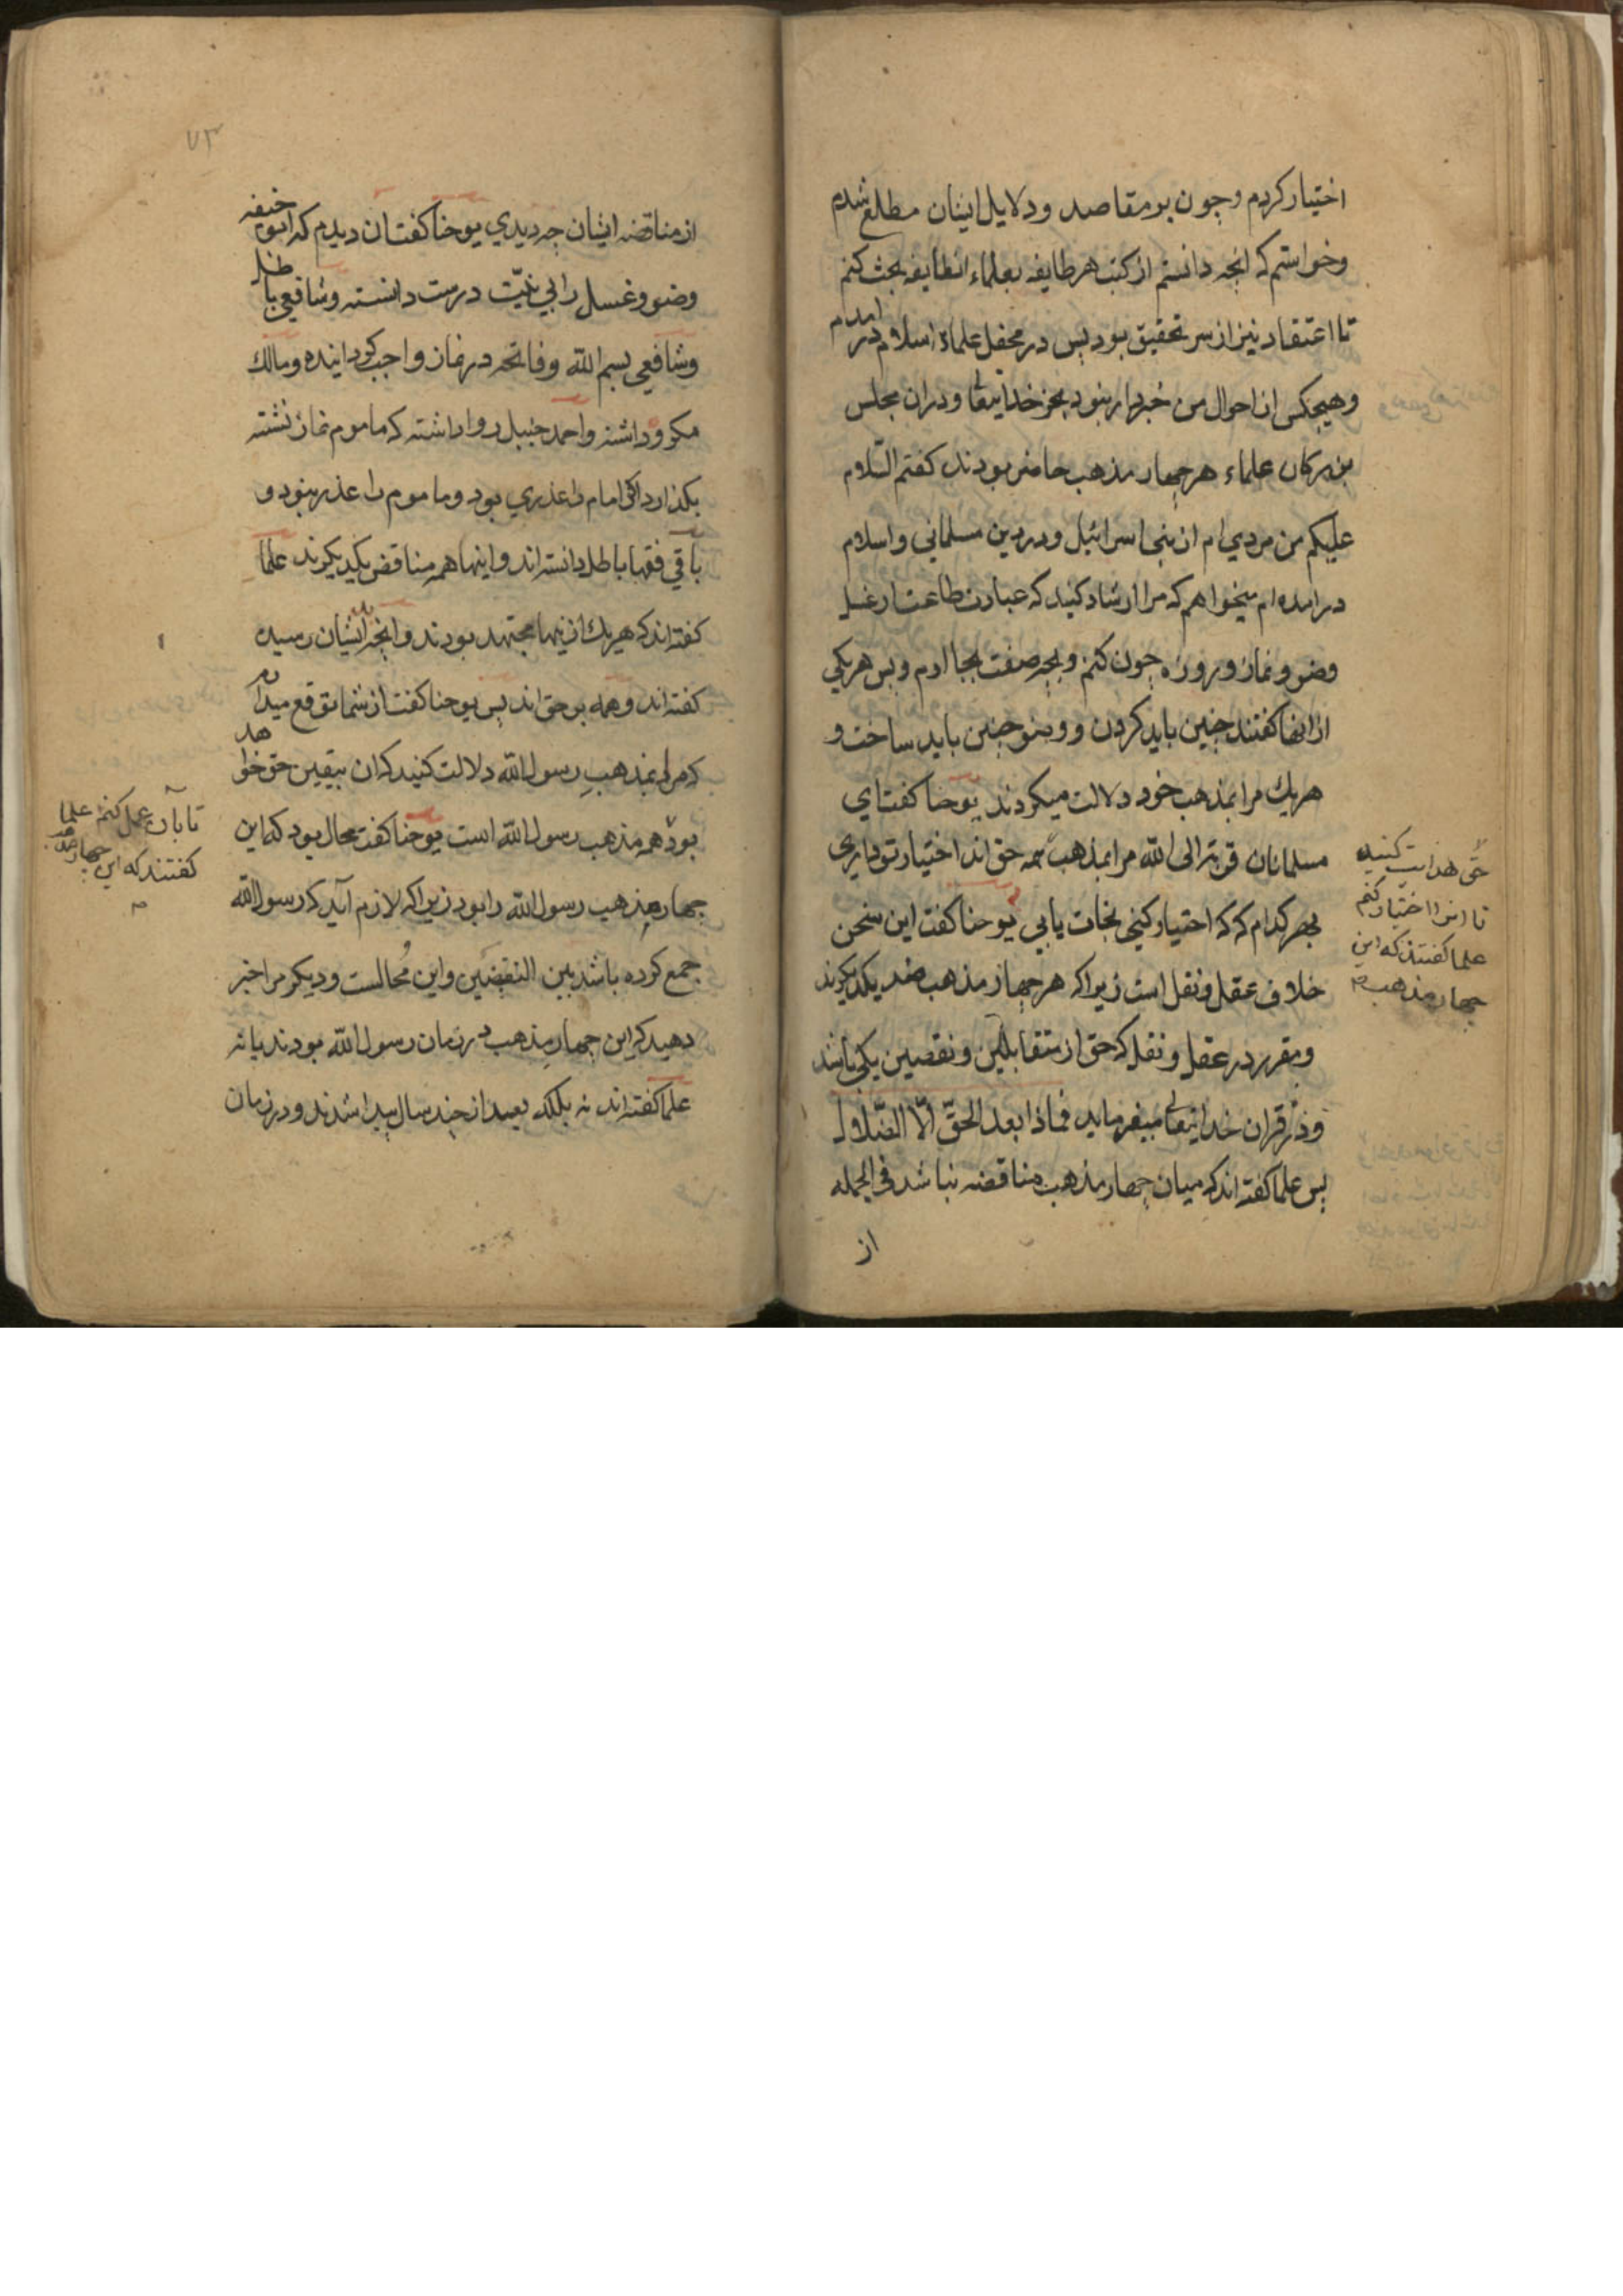 اختیار کردم وچون بر مقاصد ودلایل ایشان مطلع شدم
وخواستم که انچه دانستم از کتب هر طایفه بعلماء انطایفه بحث کنم
تا اعتقاد نیز از سر تحقیق بود پس در محفل علماء اسلام در امدم
وهیچکس از احوال من خبردار نبود بجز خدایتعالی ودران مجلس
بزرکان علماء هر چهار مذهب حاضر بودند کفتم السّلام
علیکم من مردی ام از بنی اسرائیل ودر دین مسلمانی واسلام
درامده ام میخواهم که مرا ارشاد کنید که عبادت طاعت از غسل
وضو ونماز وروزه چون کنم وبچه صفت بجا ارم وپس هر یکی
از انها کفتند چنین باید کردن ووضو چنین باید ساخت و
هریك مرا بمذهب خود دلالت میکردند یوحنا کفت ای
مسلمانان قربة الی الله مرا بمذهب همه حق اند اختیار تو داری
بهر کدام که که اختیار کنی نجات یابی یوحنا کفت این سخن
خلاف عقل ونقل است زیرا که هر چهار مذهب ضد یکدیکرند
ومقرر در عقل ونقل که حق از متقابلین ونقضین یکی باشد
ودر قران خدایتعالی میفرماید فماذا بعد الحقّ الّا الضّلال
پس علما کفته اند که میان چهار مذهب مناقضه نباشد فی الجمله
از
حقّ هدایت کنید
تا انرا اختیار کنم
علما کفتند که این
چهار مذهب
۷۳
از مناقضه ایشان چه دیدی یوحنا کفت ان دیدم که ابو حنیفه
وضو وغسل را بی نیّت درست دانسته وشافعی باطل
وشافعی بسم الله وفاتحه در نماز واجب کردانیده ومالك
مکروه داشته واحمد حنبل روا داشته که ماموم نماز نشته
بکذارد اکر امام را عذری بود وماموم را عذر نبود و
باقی فقها باطل دانسته اند واینها همه مناقض یکدیکرند علما
کفته اند که هریك از ینها مجتهد بودند وانچه بایشان رسیده
کفته اند وهمه بر حق اند پس یوحنا کفت از شما توقع میدارم
که مرا بمذهب رسول الله دلالت کنید که ان بیقین حق خواهد
بود همه مذهب رسول الله است یوحنا کفت محال بود که این
چهار مذهب رسول الله را بود زیرا که لازم آید که رسول الله
جمع کرده باشد بین النقضین واین مُحالست ودیکر مرا خبر
دهید که این چهار مذهب در زمان رسول الله بودند یا نه
علما کفته اند نه بلکه بعد از چند سال پیدا شدند ودر زمان
تا بآن عمل کنم علما
کفتند که این چهار مذهب